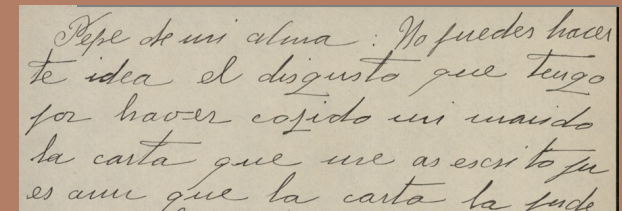 Pepe de mi alma : No puedes hacer
te idea el disgusto que tengo
por haver cojido mi marido
la carta que me as escrito pu
es aun que la carta la pude